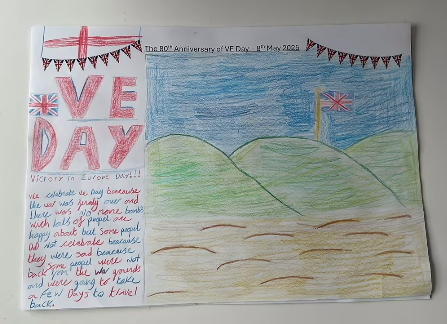 The 80th Anniversary of VE Day 8th May 2025
VE
DAY
Victory in Europe Day!!!
we celebrate ve Day beacause
the war was finaly over and
there was no more bombs
with lots of peopel are
happy about but some peopel
Did not celabrate beacause
they were sad beacause
some peopel were not
back from the war grounds
and were going to take
a Few Days to travel
back.